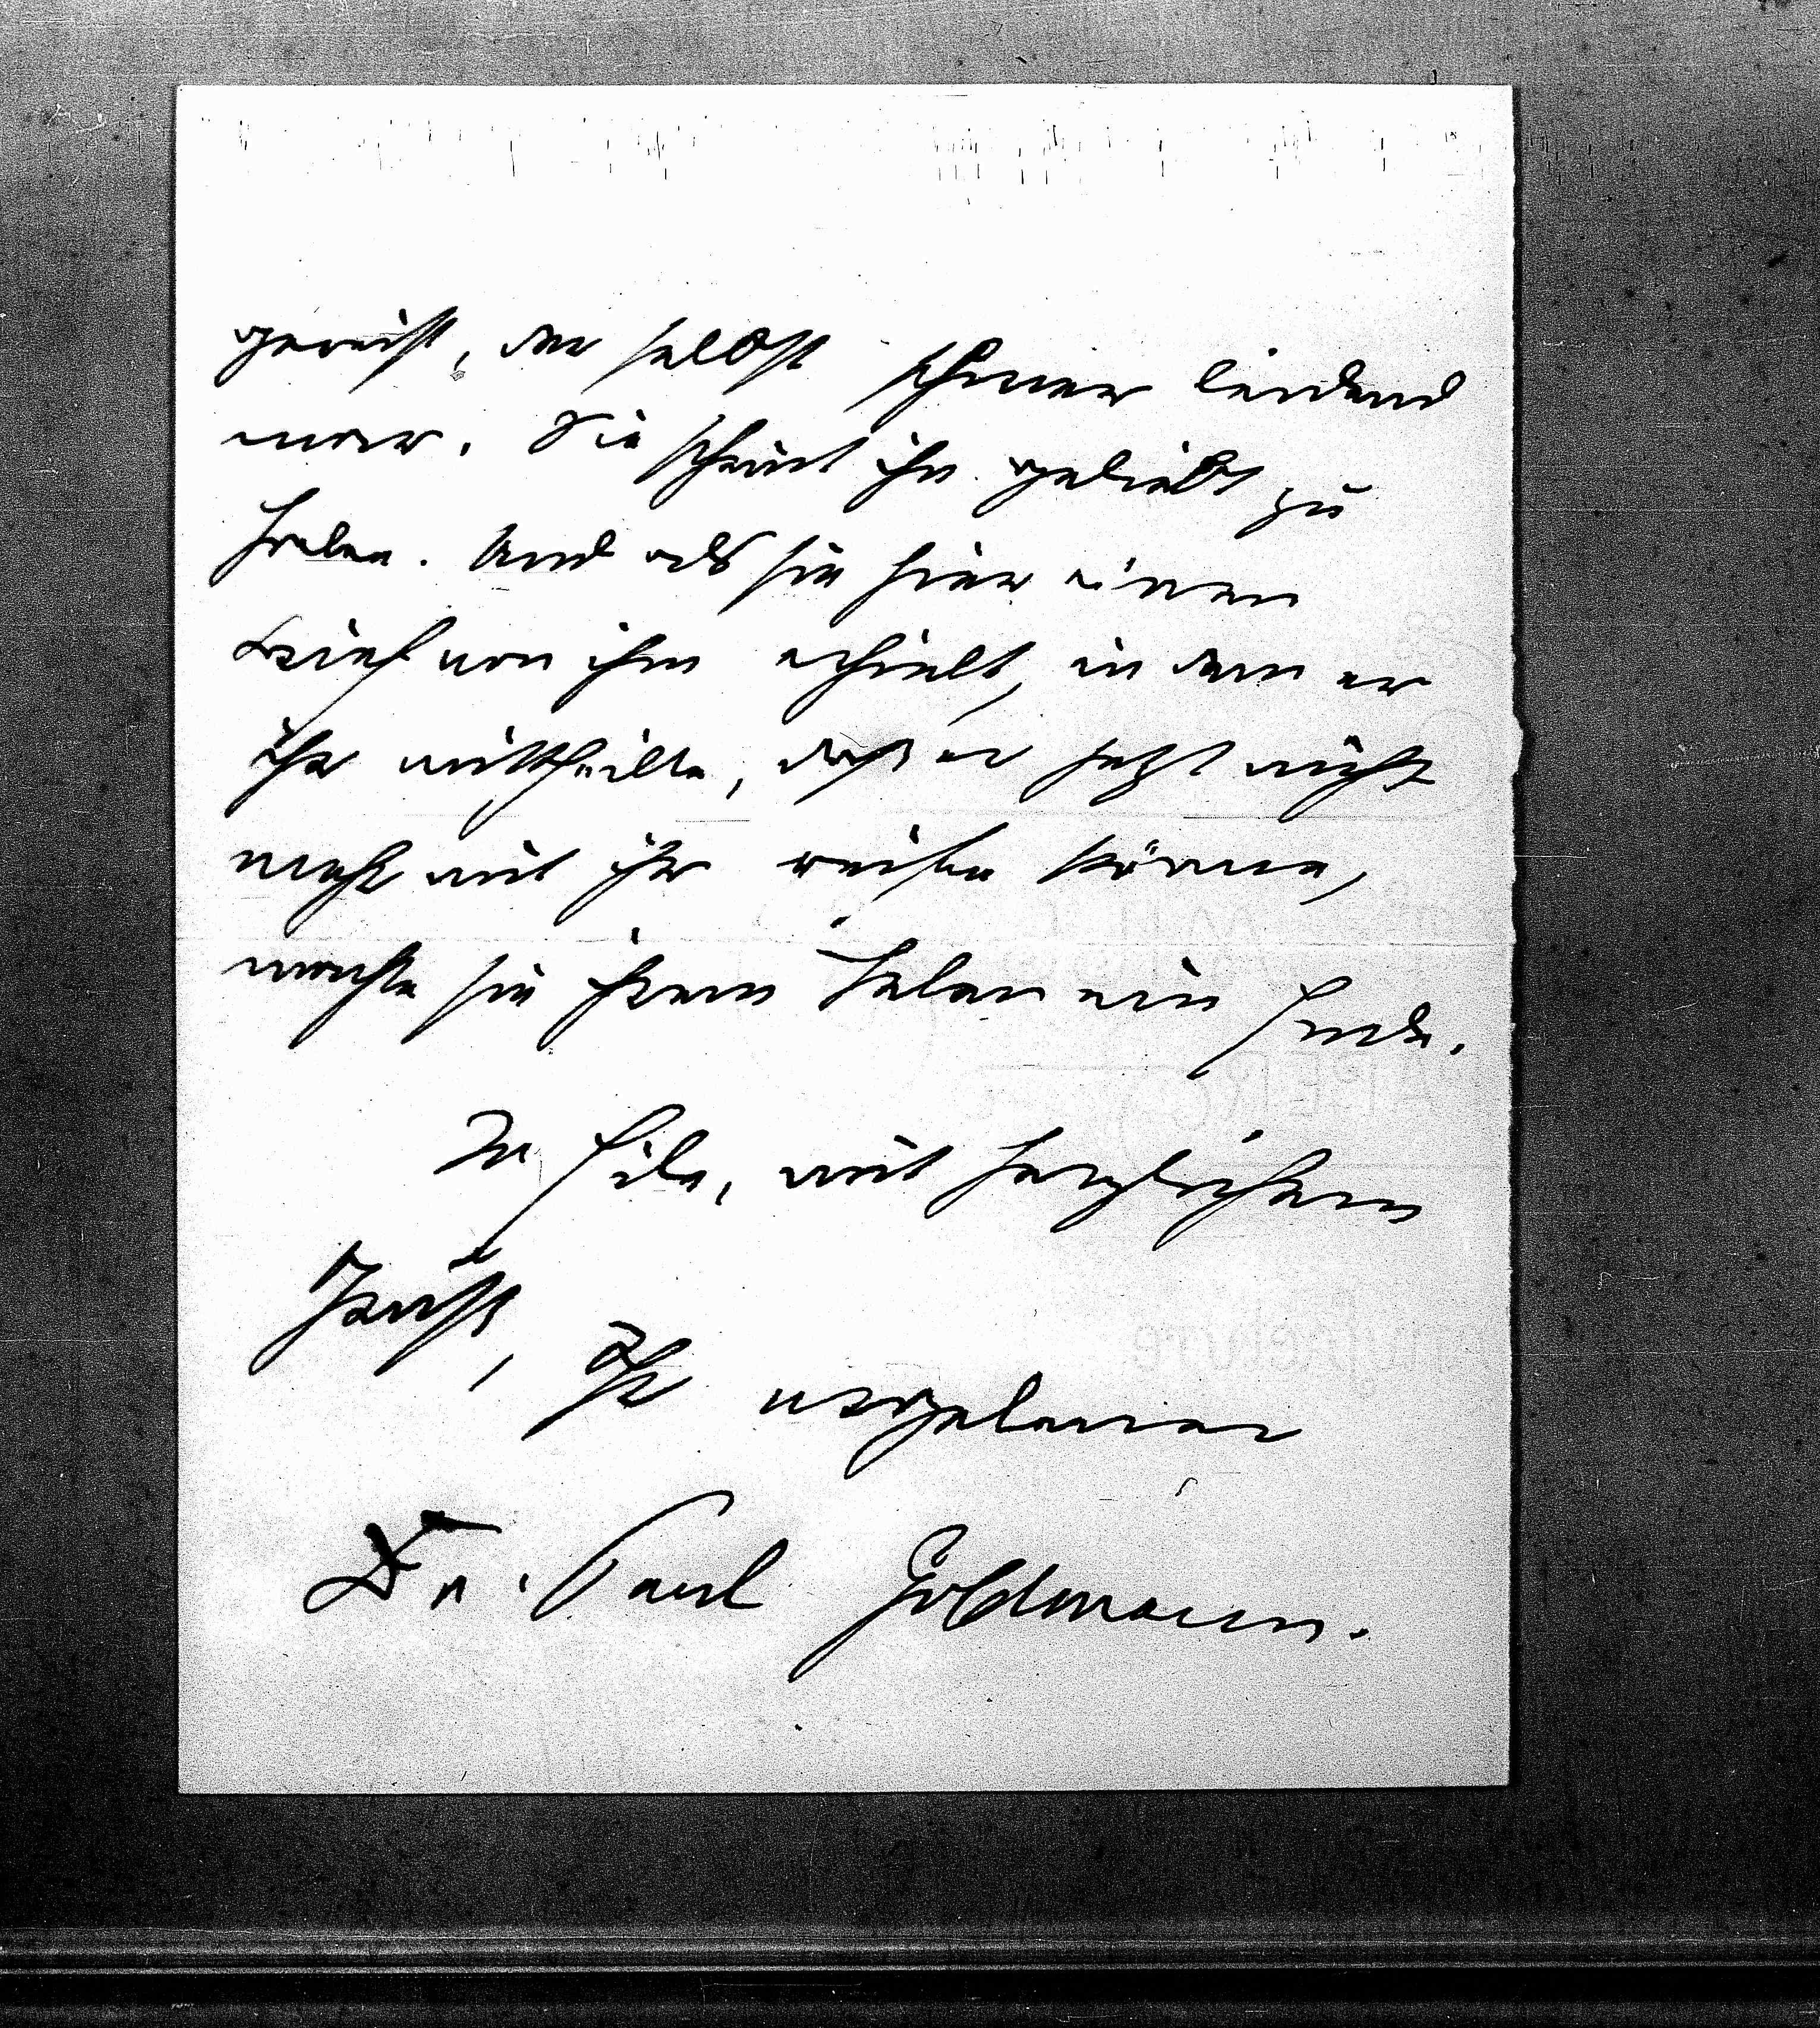 gereist, der selbst schwer leidend
war. Sie scheint ihn geliebt zu
haben. Und als sie hier einen
Brief von ihm erhielt, in dem er
ihr mittheilte, daß er jetzt nicht
mehr mit ihr reisen könne,
machte sie ihrem Leben ein Ende.
In Eile, mit herzlichem
Gruß,
Ihr ergebener
Dr. Paul Goldmann.